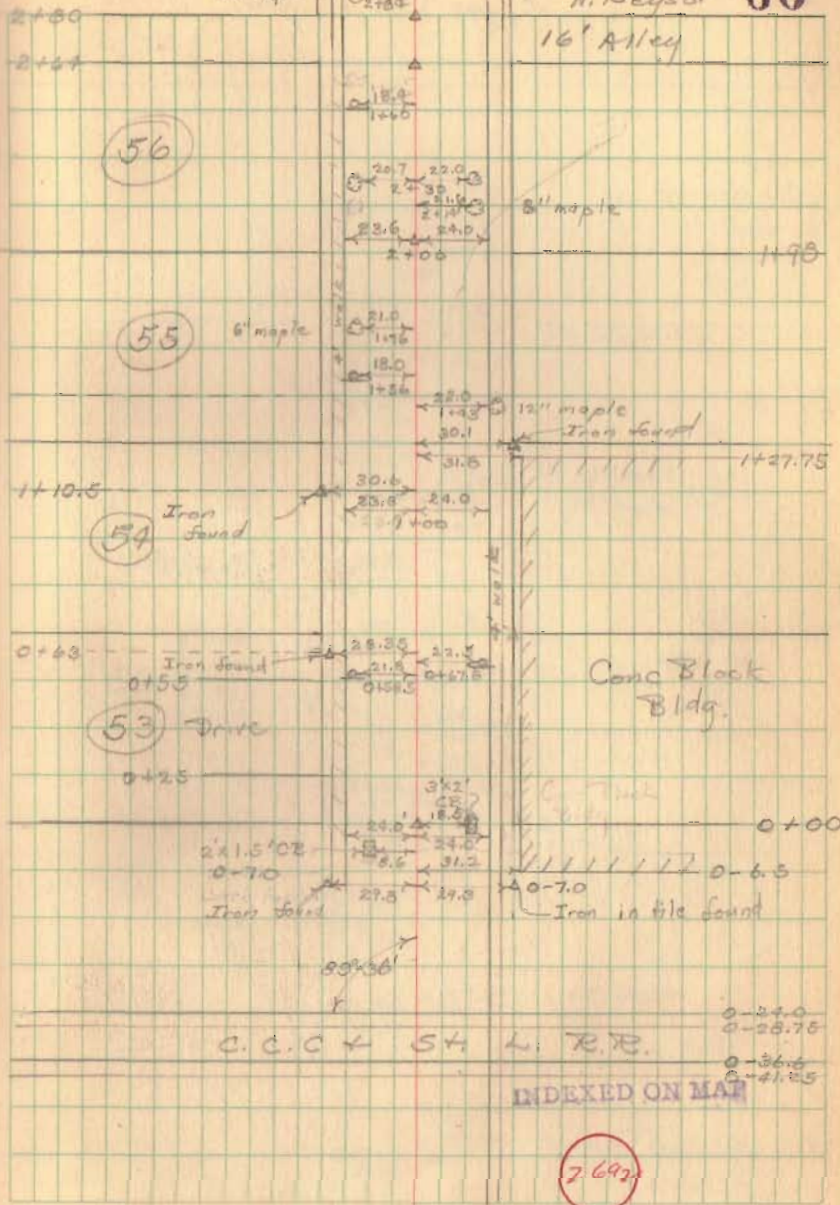 2+80
2+84
66
16' Alley
2+64
18.4
1+60
56
20.7 22.0
2+30
8" maple
23.6 24.0
2+00
1+98
55
6" maple
21.0
4' walk
18.0
1+56
22.0
1+43
12" maple
30.1
Iron found
31.8
1+27.75
1+10.5
30.6
Iron found
23.8 24.0
1+00
54
4' walk
0+63
28.35
22.5
Iron found
21.8
0+58.5
0+67.8
0+55
Conc Block
Bldg.
53 Drive
0+25
3'x2'
CB
18.6
24.0'
0+00
2'x1.5' CB
24.0
8.6
31.2
0-7.0
0-6.5
29.8 29.8
0-7.0
Iron found
Iron in tile found
89°36'
0-24.0
0-28.75
C. C. C & St. L. R.R.
0-36.6
0-41.25
INDEXED ON MAP
2692